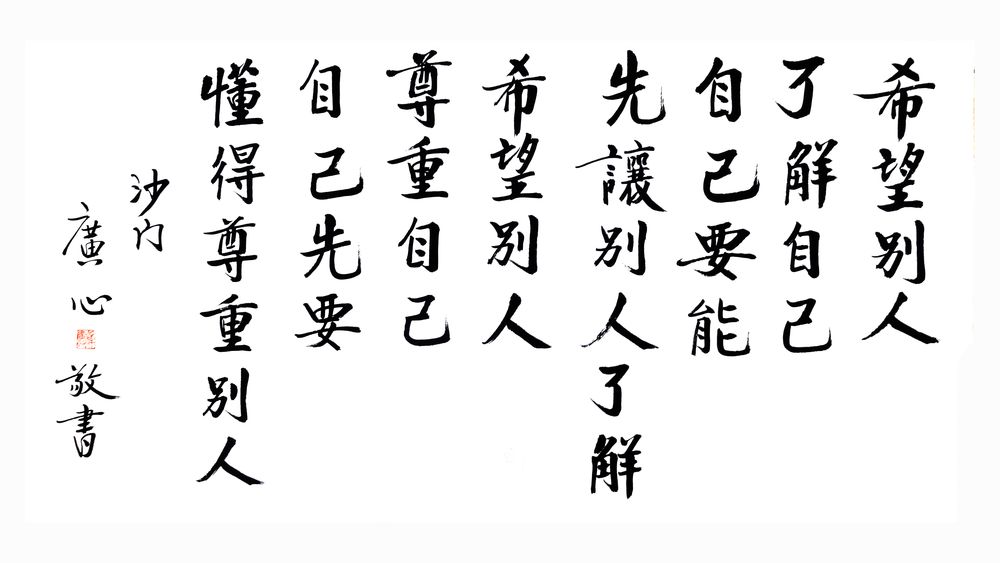 希望别人
了解自己
自己要能
先讓别人了解
希望别人
尊重自己
自己先要
懂得尊重别人
沙门
廣心
敬書